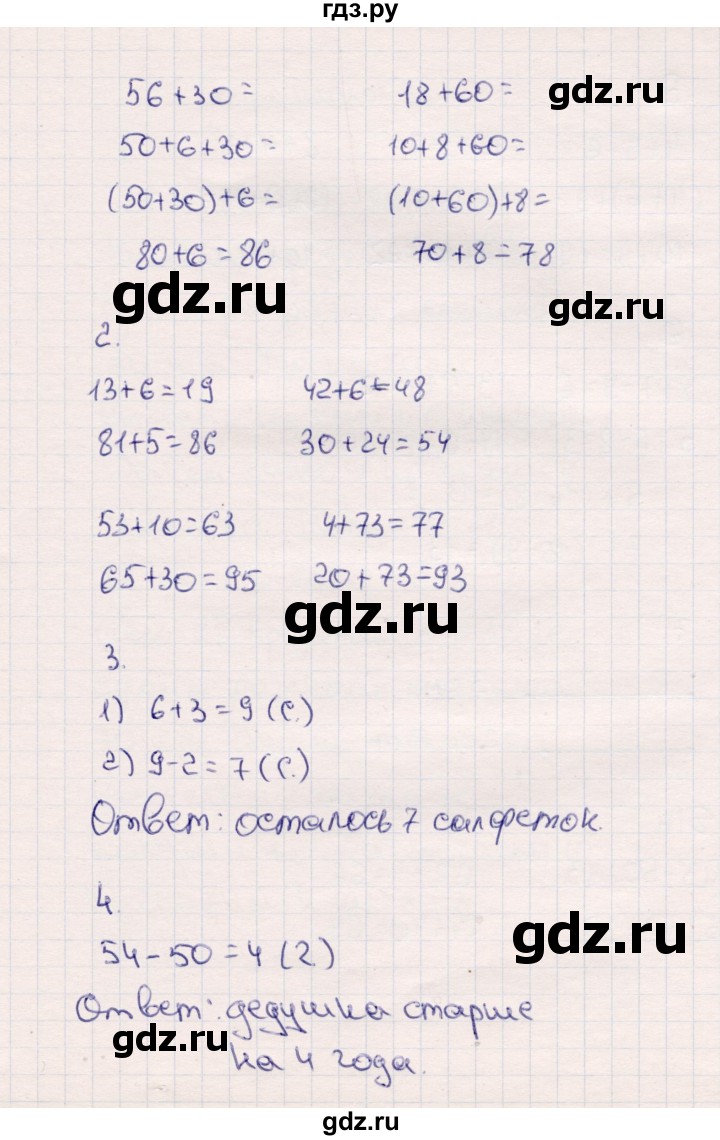 гдз.ру
56+30= 18+60=
gdz.ru
50+6+30= 10+8+60=
(50+30)+6= (10+60)+8=
80+6=86 70+8=78
gdz.ru
gdz.ru
2.
13+6=19 42+6=48
81+5=86 30+24=54
53+10=63 4+73=77
65+30=95 20+73=93
gdz.ru
3.
1) 6+3=9 (с.)
2) 9-2=7 (с.)
Ответ: осталось 7 салфеток.
4.
gdz.ru
54-50=4 (г.)
Ответ: дедушка старше
gdz.ru
на 4 года.
gdz.ru